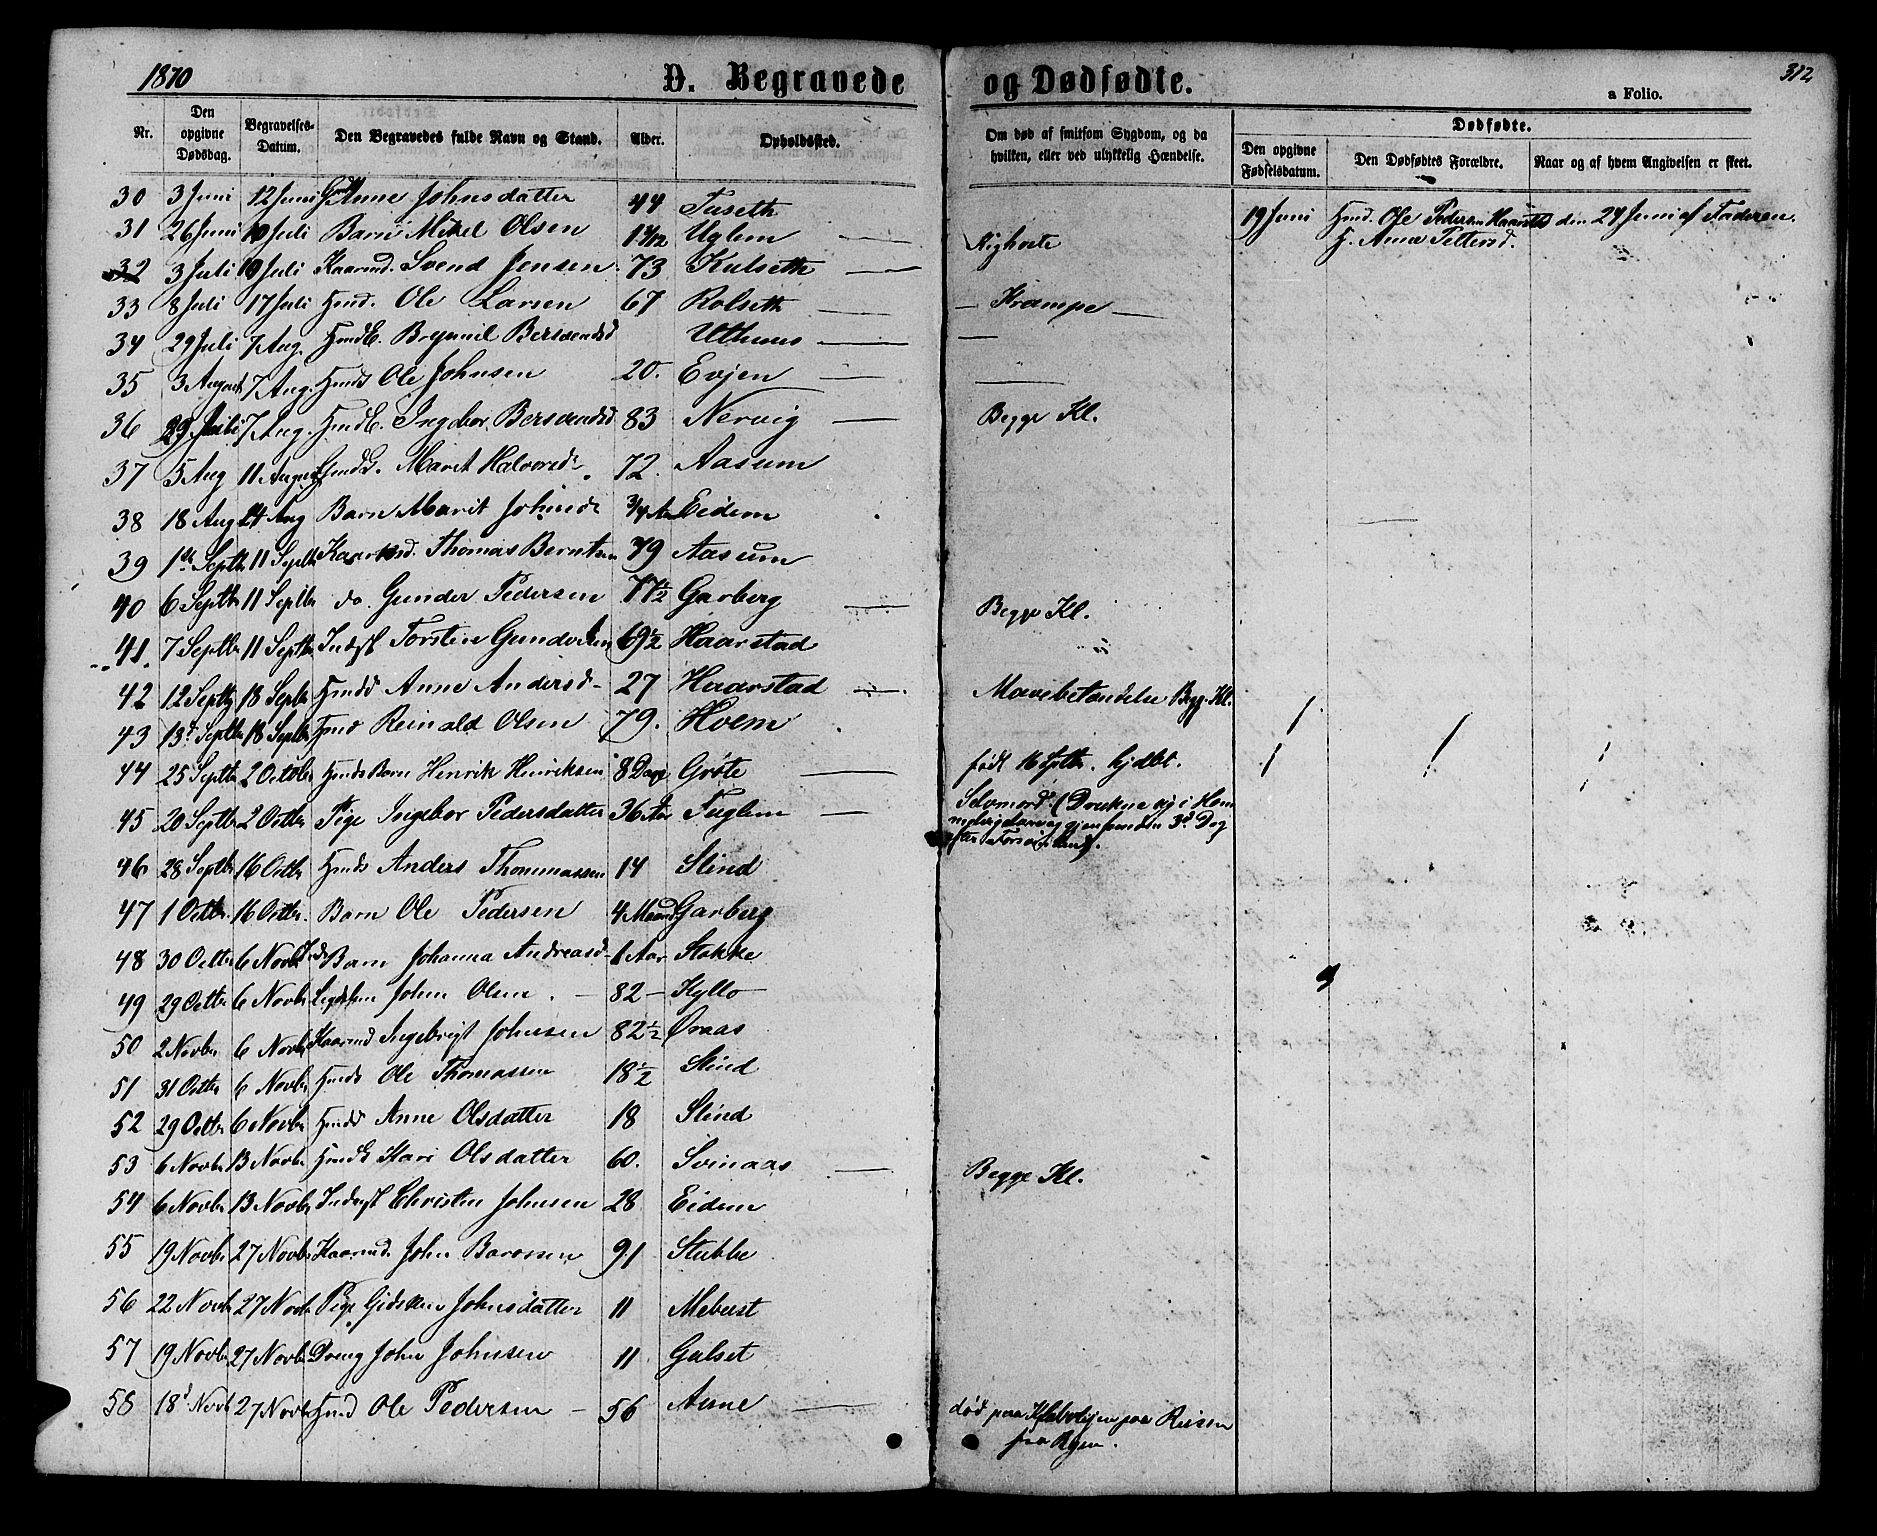 1870 D. Begravede og Dødfødte. 312
a Folio.
Nr. Den opgivne Dødsdag. Begravelses-Datum. Den Begravedes fulde Navn og Stand. Alder. Opholdssted. Om død af smitsom Sygdom, og da hvilken, eller ved ulykkelig Hændelse. Dødfødte. Den opgivne Fødselsdatum. Den Dødfødtes Forældre. Naar og af hvem Angivelsen er skeet.
30 3 Juni 12 Juni Anne Johnsdatter 44 Tuseth 19 Juni Gmd. Ole Pedersen den 24 Juni af Faderen.
H. Anne Pettersd.
31 26 Juni 10 Juli Barn Mikel Olsen Uglem Kighoste
32 3 Juli 10 Juli Kaarmd. Svend Jensen 73 Kulseth
33 8 Juli 17 Juli Gmd. Ole Larsen 67 Rolseth — Krampe —
34 29 Juli 7 Aug. Bersvendsd Uthuus —
35 3 August 7 Aug. Ole Johnsen 20. Evjen —
36 29 Juli 7 Aug. Ingebor Bersvendsd 83 Nervig — Begge Kl.
37 5 Aug 11 August Marit Halvorsd. 72. Aasum
38 18 Aug 21 Aug Barn Marit Johnsd. 3/4 Aar Eidem
39 1ste Septbr 11 Septbr Kaarmd. Thomas Berntsen 79 Aasum
40 6 Septbr 11 Septbr do. Gunder Pedersen 77½ Garberg — Begge Kl.
41. 7 Septbr 11 Septbr Inderst Torsten 69½ Haarstad
42 12 Septbr 18 Septbr Anne Andersd. 27 Haarstad — Mavebetændelse Begg. Kl.
43 13d Septbr 18 Septbr Reinald Olsen 79. Hvem
44 25 Septbr 2 October Gmds Barn Henrik Henriksen 8 Dage Grøte — født 16 Septbr. hjdbt.
45 20 Septbr 2 Octbr Pige Ingebor Pedersdatter 36 Aar Fuglem — Selvmord (Druknede sig i
46. 28 Septbr 16 Octbr Anders Thommassen 14 Slind
47 1 Octbr 16 Octbr. Barn Ole Pedersen 4 Maaned Garberg
48 30 Octbr 6 Novbr Barn Johanna Andreasd. 1 Aar Stokke
49 29 Octbr 6 Novbr John Olsen. — 82 — Kyllo
50 2 Novbr 6 Novbr Kaarmd Ingebrigt Johnsen 82½ Øraas
51 31 Octbr 6 Novbr Ole Thomassen 18½ Slind
52 29 Octbr 6 Novbr Anne Olsdatter 18 Slind
53 6 Novbr 13 Novbr Kari Olsdatter 60. Svinaas — Begge Kl.
54 6 Novbr 13 Novbr Inderst Christen Johnsen 28 Eidem
55 19 Novbr 27 Novbr Kaarmd. John Baarsen 91 Stubbe
56 22 Novbr 27 Novbr Pige Gidsken Johnsdatter 11 Mebust
57 19 Novbr 27 Novbr Dreng John Johnsen 11 Gulset
58 18d Novb 27 Novbr Gmd Ole Pedersen — 56 Aune — død paa paa Reisen
fra Byen.